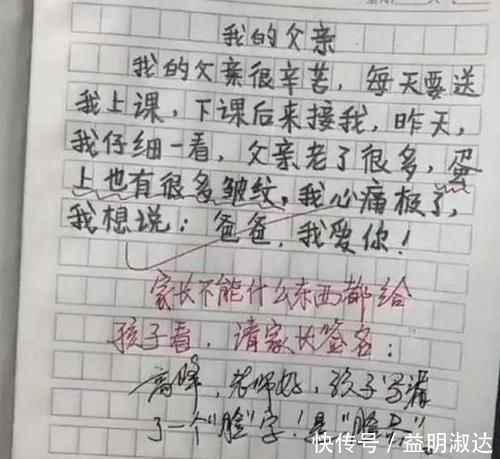 我的父亲
我的父亲很辛苦，每天要送
我上课，下课后来接我，昨天，
我仔细一看，父亲老了很多，蛋
上也有很多皱纹，我心痛极了，
我想说：爸爸，我爱你！
家长不能什么东西都给
孩子看，请家长签名：
高峰，老师好，孩子写漏
了一个"脸"字！是"脸蛋"
快传号/益明淑达